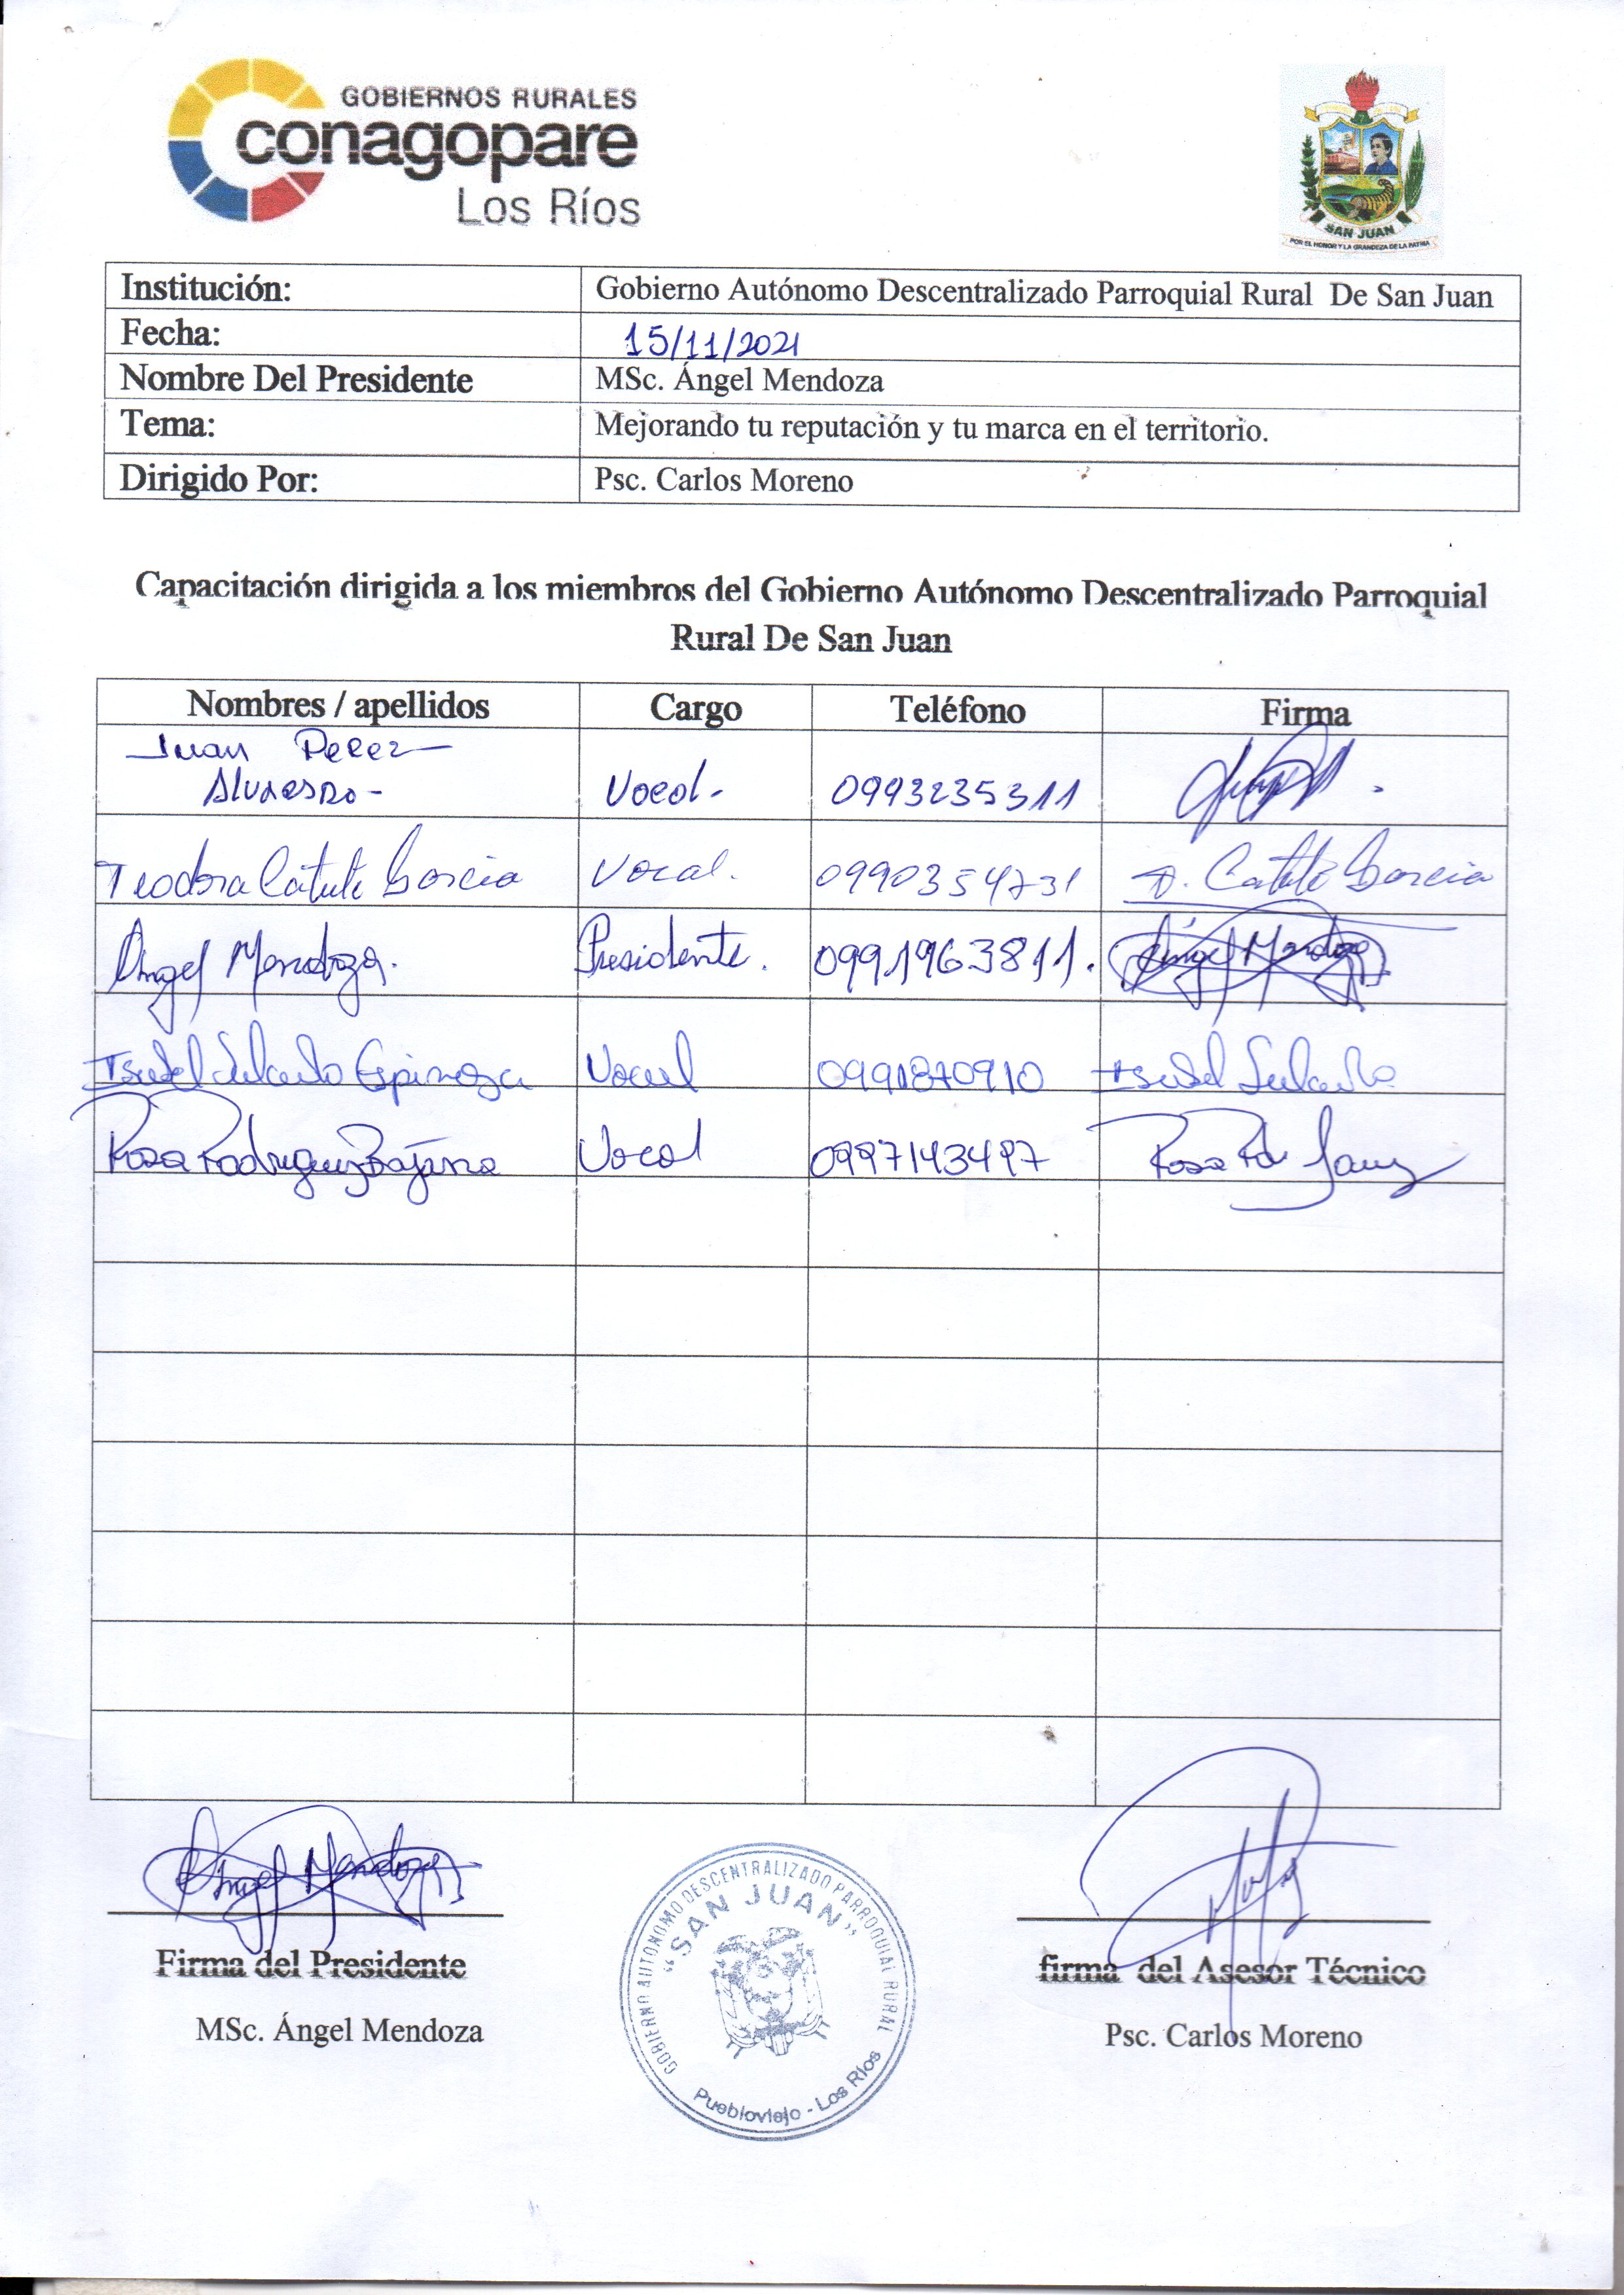 GOBIERNOS RURALES
conagopare
Los Ríos
SAN JUAN
POR EL HONOR Y LA GRANDEZA DE LA PATRIA
Institución: Gobierno Autónomo Descentralizado Parroquial Rural De San Juan
Fecha: 15/11/2021
Nombre Del Presidente MSc. Ángel Mendoza
Tema: Mejorando tu reputación y tu marca en el territorio.
Dirigido Por: Psc. Carlos Moreno
Capacitación dirigida a los miembros del Gobierno Autónomo Descentralizado Parroquial
Rural De San Juan
Nombres / apellidos Cargo Teléfono Firma
Juan Perez
Vocal- 0993235311
Teodora Catute Garcia Vocal. 0990354731 Catute Garcia
Ángel Mendoza. Presidente. 0991963811. Ángel Mendoza
Isabel Espinoza Vocal 0991870910 Isabel
Rosa Rodriguez Bajaña Vocal 0997143497 Rosa
Ángel Mendoza
Firma del Presidente firma del Asesor Técnico
MSc. Ángel Mendoza Psc. Carlos Moreno
GOBIERNO AUTONOMO DESCENTRALIZADO PARROQUIAL RURAL
"SAN JUAN"
Puebloviejo - Los Ríos